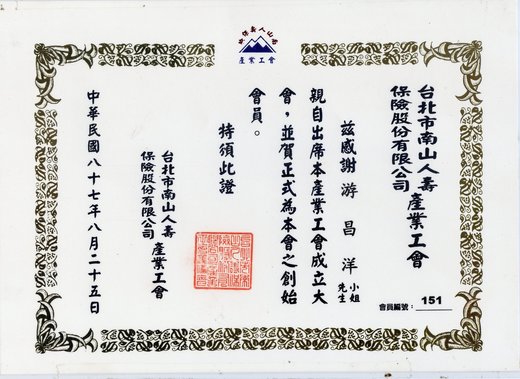 南山人壽保險
產業工會
台北市南山人壽保險股份有限公司產業工會
茲感謝 游昌洋 小姐 先生
親自出席本產業工會成立大
會，並賀正式為本會之創始
會員。
特頒此證
台北市南山人壽保險股份有限公司產業工會
中華民國八十七年八月二十五日
會員編號：151